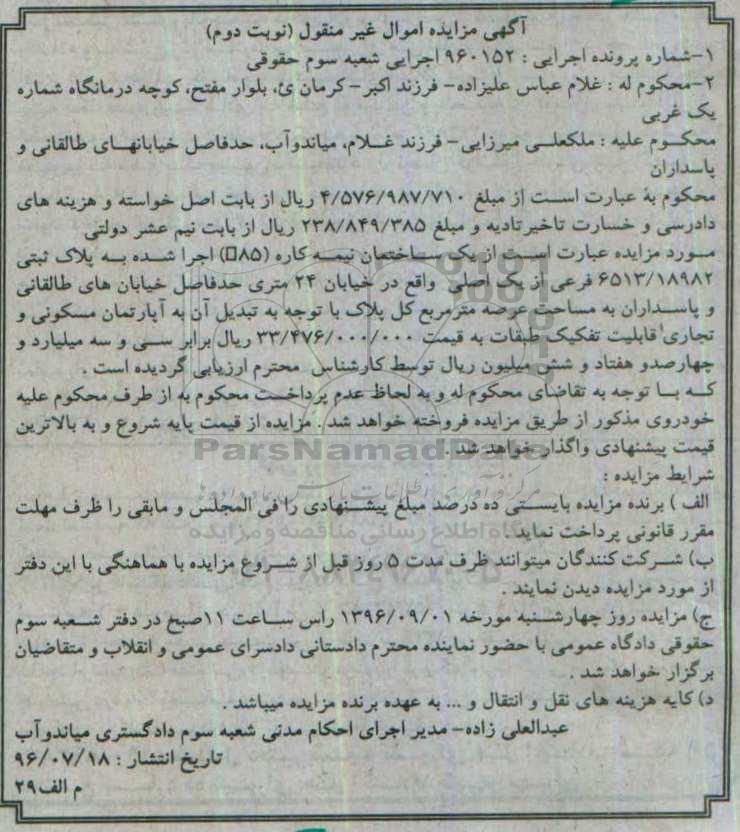 آگهی مزایده اموال غیر منقول (نوبت دوم)
۱-شماره پرونده اجرایی : ۹۶۰۱۵۲ اجرایی شعبه سوم حقوقی
۲-محکوم له : غلام عباس علیزاده- فرزند اکبر-کرمان ئ، بلوار مفتح، کوچه درمانگاه شماره
یک غربی
محکوم علیه : ملکعلی میرزایی- فرزند غلام، میاندوآب، حدفاصل خیابانهای طالقانی و
پاسداران
محکوم به عبارت است از مبلغ ۴/۵۷۶/۹۸۷/۷۱۰ ریال از بابت اصل خواسته و هزینه های
دادرسی و خسارت تاخیرتادیه و مبلغ ۲۳۸/۸۴۹/۳۸۵ ریال از بابت نیم عشر دولتی
مورد مزایده عبارت است از یک ساختمان نیمه کاره (۸۵□) اجرا شده به پلاک ثبتی
۶۵۱۳/۱۸۹۸۲ فرعی از یک اصلی واقع در خیابان ۲۴ متری حدفاصل خیابان های طالقانی
و پاسداران به مساحت عرصه مترمربع کل پلاک با توجه به تبدیل آن به آپارتمان مسکونی و
تجاری قابلیت تفکیک طبقات به قیمت ۳۳/۴۷۶/۰۰۰/۰۰۰ ریال برابر سی و سه میلیارد و
چهارصدو هفتاد و شش میلیون ریال توسط کارشناس محترم ارزیابی گردیده است .
که با توجه به تقاضای محکوم له و به لحاظ عدم پرداخت محکوم به از طرف محکوم علیه
خودروی مذکور از طریق مزایده فروخته خواهد شد . مزایده از قیمت پایه شروع و به بالاترین
قیمت پیشنهادی واگذار خواهد شد .
ParsNamadData
شرایط مزایده :
الف ) برنده مزایده بایستی ده درصد مبلغ پیشنهادی را فی المجلس و مابقی را ظرف مهلت
مقرر قانونی پرداخت نماید
ب) شرکت کنندگان میتوانند ظرف مدت ۵ روز قبل از شروع مزایده با هماهنگی با این دفتر
از مورد مزایده دیدن نمایند .
ج) مزایده روز چهارشنبه مورخه ۱۳۹۶/۰۹/۰۱ راس ساعت ۱۱صبح در دفتر شعبه سوم
حقوقی دادگاه عمومی با حضور نماینده محترم دادستانی دادسرای عمومی و انقلاب و متقاضیان
برگزار خواهد شد .
د) کلیه هزینه های نقل و انتقال و ... به عهده برنده مزایده میباشد .
عبدالعلی زاده- مدیر اجرای احکام مدنی شعبه سوم دادگستری میاندوآب
تاریخ انتشار : ۹۶/۰۷/۱۸
م الف۲۹